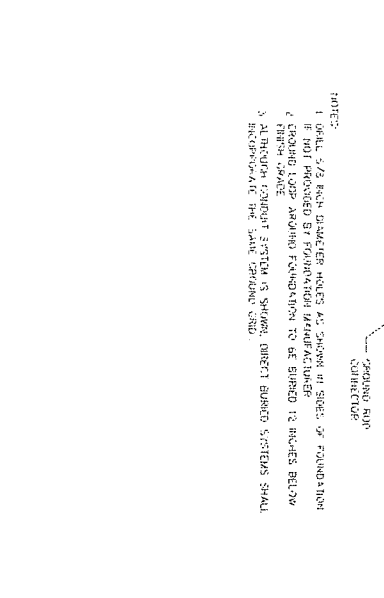 GROUND ROD
CONNECTOR
NOTES:
1 DRILL 5/8 INCH DIAMETER HOLES AS SHOWN IN SIDES OF FOUNDATION
IF NOT PROVIDED BY FOUNDATION MANUFACTURER
2 GROUND LOOP AROUND FOUNDATION TO BE BURIED 12 INCHES BELOW
FINISH GRADE
3 ALTHOUGH CONDUIT SYSTEM IS SHOWN, DIRECT BURIED SYSTEMS SHALL
INCORPORATE THE SAME GROUND GRID.